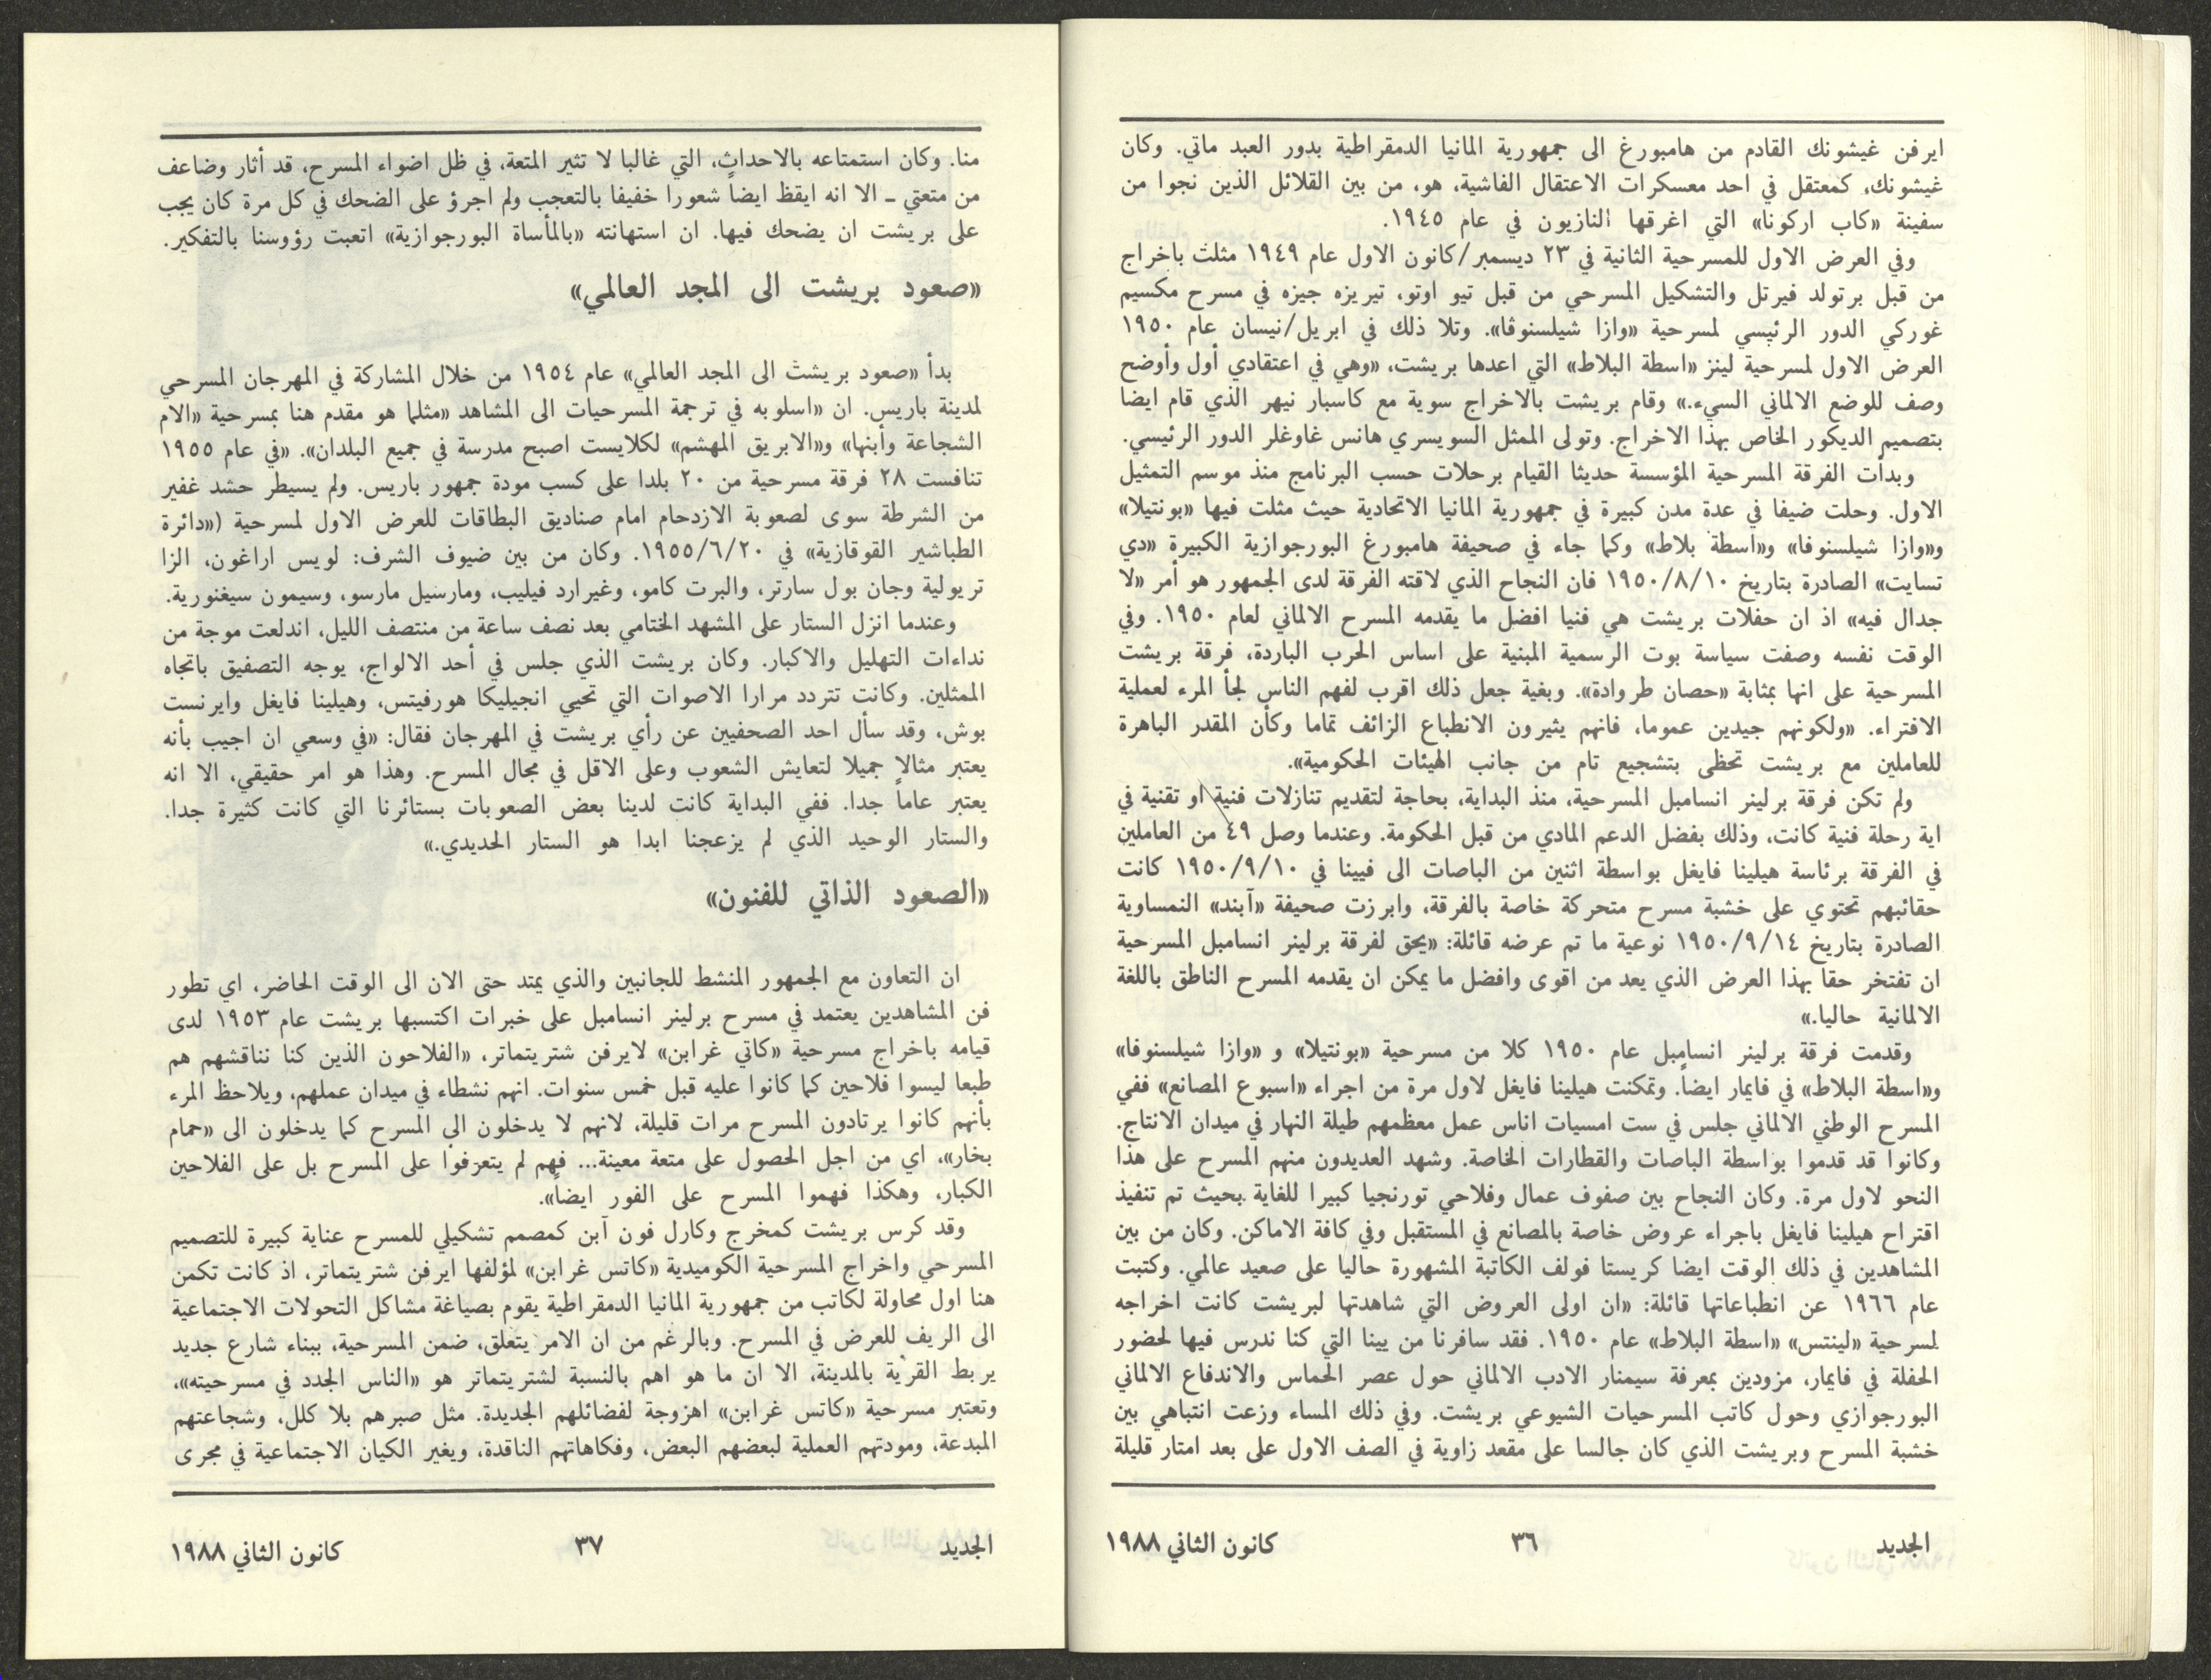 ايرفن غيشونك القادم من هامبورغ الى جمهورية المانيا الدمقراطية بدور العبد ماتي. وكان
غيشونك، كمعتقل في احد معسكرات الاعتقال الفاشية، هو، من بين القلائل الذين نجوا من
سفينة «كاب اركونا» التي اغرقها النازيون في عام ١٩٤٥.
وفي العرض الاول للمسرحية الثانية في ٢٣ ديسمبر/كانون الاول عام ١٩٤٩ مثلت باخراج
من قبل برتولد فيرتل والتشكيل المسرحي من قبل تيو اوتو، تيريزه جيزه في مسرح مكسيم
غوركي الدور الرئيسي لمسرحية «وازا شيلسنوڤا». وتلا ذلك في ابريل/نيسان عام ١٩٥٠
العرض الاول لمسرحية لينز «اسطة البلاط» التي اعدها بريشت، «وهي في اعتقادي أول وأوضح
وصف للوضع الالماني السيء.» وقام بريشت بالاخراج سوية مع كاسبار نيهر الذي قام ايضا
بتصميم الديكور الخاص بهذا الاخراج. وتولى الممثل السويسري هانس غاوغلر الدور الرئيسي.
وبدأت الفرقة المسرحية المؤسسة حديثا القيام برحلات حسب البرنامج منذ موسم التمثيل
الاول. وحلت ضيفا في عدة مدن كبيرة في جمهورية المانيا الاتحادية حيث مثلت فيها «بونتيلا»
و«وازا شيلسنوفا» و«اسطة بلاط» وكما جاء في صحيفة هامبورغ البورجوازية الكبيرة «دي
تسايت» الصادرة بتاريخ ١٩٥٠/٨/١٠ فان النجاح الذي لاقته الفرقة لدى الجمهور هو أمر «لا
جدال فيه» اذ ان حفلات بريشت هي فنيا افضل ما يقدمه المسرح الالماني لعام ١٩٥٠. وفي
الوقت نفسه وصفت سياسة بوت الرسمية المبنية على اساس الحرب الباردة، فرقة بريشت
المسرحية على انها بمثابة «حصان طروادة». وبغية جعل ذلك اقرب لفهم الناس لجأ المرء لعملية
الافتراء. «ولكونهم جيدين عموما، فانهم يثيرون الانطباع الزائف تماما وكأن المقدر الباهرة
للعاملين مع بريشت تحظى بتشجيع تام من جانب الهيئات الحكومية».
ولم تكن فرقة برلينر انسامبل المسرحية، منذ البداية، بحاجة لتقديم تنازلات فنية او تقنية في
اية رحلة فنية كانت، وذلك بفضل الدعم المادي من قبل الحكومة. وعندما وصل ٤٩ من العاملين
في الفرقة برئاسة هيلينا فايغل بواسطة اثنين من الباصات الى فيينا في ١٩٥٠/٩/١٠ كانت
حقائبهم تحتوي على خشبة مسرح متحركة خاصة بالفرقة، وابرزت صحيفة «آبند» النمساوية
الصادرة بتاريخ ١٩٥٠/٩/١٤ نوعية ما تم عرضه قائلة: «يحق لفرقة برلينر انسامبل المسرحية
ان تفتخر حقا بهذا العرض الذي يعد من اقوى وافضل ما يمكن ان يقدمه المسرح الناطق باللغة
الالمانية حاليا.»
وقدمت فرقة برلينر انسامبل عام ١٩٥٠ كلا من مسرحية «بونتيلا» و «وازا شيلسنوفا»
و«اسطة البلاط» في فايمار ايضاً. وتمكنت هيلينا فايغل لاول مرة من اجراء «اسبوع المصانع» ففي
المسرح الوطني الالماني جلس في ست امسيات اناس عمل معظمهم طيلة النهار في ميدان الانتاج.
وكانوا قد قدموا بواسطة الباصات والقطارات الخاصة. وشهد العديدون منهم المسرح على هذا
النحو لاول مرة. وكان النجاح بين صفوف عمال وفلاحي تورنجيا كبيرا للغاية بحيث تم تنفيذ
اقتراح هيلينا فايغل باجراء عروض خاصة بالمصانع في المستقبل وفي كافة الاماكن. وكان من بين
المشاهدين في ذلك الوقت ايضا كريستا فولف الكاتبة المشهورة حاليا على صعيد عالمي. وكتبت
عام ١٩٦٦ عن انطباعاتها قائلة: «ان اولى العروض التي شاهدتها لبريشت كانت اخراجه
لمسرحية «لينتس» «اسطة البلاط» عام ١٩٥٠. فقد سافرنا من يينا التي كنا ندرس فيها لحضور
الحفلة في فايمار، مزودين بمعرفة سيمنار الادب الالماني حول عصر الحماس والاندفاع الالماني
البورجوازي وحول كاتب المسرحيات الشيوعي بريشت. وفي ذلك المساء وزعت انتباهي بين
خشبة المسرح وبريشت الذي كان جالسا على مقعد زاوية في الصف الاول على بعد امتار قليلة
الجديد
٣٦
كانون الثاني ١٩٨٨
منا. وكان استمتاعه بالاحداث، التي غالبا لا تثير المتعة، في ظل اضواء المسرح، قد أثار وضاعف
من متعتي ـ الا انه ايقظ ايضاً شعورا خفيفا بالتعجب ولم اجرؤ على الضحك في كل مرة كان يجب
على بريشت ان يضحك فيها. ان استهانته «بالمأساة البورجوازية» اتعبت رؤوسنا بالتفكير.
«صعود بريشت الى المجد العالمي»
بدأ «صعود بريشت الى المجد العالمي» عام ١٩٥٤ من خلال المشاركة في المهرجان المسرحي
لمدينة باريس. ان «اسلوبه في ترجمة المسرحيات الى المشاهد «مثلما هو مقدم هنا بمسرحية «الام
الشجاعة وأبنها» و«الابريق المهشم» لكلايست اصبح مدرسة في جميع البلدان». «في عام ١٩٥٥
تنافست ٢٨ فرقة مسرحية من ٢٠ بلدا على كسب مودة جمهور باريس. ولم يسيطر حشد غفير
من الشرطة سوى لصعوبة الازدحام امام صناديق البطاقات للعرض الاول لمسرحية («دائرة
الطباشير القوقازية» في ١٩٥٥/٦/٢٠. وكان من بين ضيوف الشرف: لويس اراغون، الزا
تريولية وجان بول سارتر، والبرت كامو، وغيرارد فيليب، ومارسيل مارسو، وسيمون سيغنورية.
وعندما انزل الستار على المشهد الختامي بعد نصف ساعة من منتصف الليل، اندلعت موجة من
نداءات التهليل والاكبار. وكان بريشت الذي جلس في أحد الالواج، يوجه التصفيق باتجاه
الممثلين. وكانت تتردد مرارا الاصوات التي تحيي انجيليكا هورفيتس، وهيلينا فايغل وايرنست
بوش، وقد سأل احد الصحفيين عن رأي بريشت في المهرجان فقال: «في وسعي ان اجيب بأنه
يعتبر مثالا جميلا لتعايش الشعوب وعلى الاقل في مجال المسرح. وهذا هو امر حقيقي، الا انه
يعتبر عاماً جدا. ففي البداية كانت لدينا بعض الصعوبات بستائرنا التي كانت كثيرة جدا.
والستار الوحيد الذي لم يزعجنا ابدا هو الستار الحديدي.»
«الصعود الذاتي للفنون»
ان التعاون مع الجمهور المنشط للجانبين والذي يمتد حتى الان الى الوقت الحاضر، اي تطور
فن المشاهدين يعتمد في مسرح برلينر انسامبل على خبرات اكتسبها بريشت عام ١٩٥٣ لدى
قيامه باخراج مسرحية «كاتي غرابن» لايرفن شتريتماتر، «الفلاحون الذين كنا نناقشهم هم
طبعا ليسوا فلاحين كما كانوا عليه قبل خمس سنوات. انهم نشطاء في ميدان عملهم، ويلاحظ المرء
بأنهم كانوا يرتادون المسرح مرات قليلة، لانهم لا يدخلون الى المسرح كما يدخلون الى «حمام
بخار»، اي من اجل الحصول على متعة معينة... فهم لم يتعرفوا على المسرح بل على الفلاحين
الكبار، وهكذا فهموا المسرح على الفور ايضاً».
وقد كرس بريشت كمخرج وكارل فون آبن كمصمم تشكيلي للمسرح عناية كبيرة للتصميم
المسرحي واخراج المسرحية الكوميدية «كاتس غرابن» لمؤلفها ايرفن شتريتماتر، اذ كانت تكمن
هنا اول محاولة لكاتب من جمهورية المانيا الدمقراطية يقوم بصياغة مشاكل التحولات الاجتماعية
الى الريف للعرض في المسرح. وبالرغم من ان الامر يتعلق، ضمن المسرحية، ببناء شارع جديد
يربط القرية بالمدينة، الا ان ما هو اهم بالنسبة لشتريتماتر هو «الناس الجدد في مسرحيته»،
وتعتبر مسرحية «كاتس غرابن» اهزوجة لفضائلهم الجديدة. مثل صبرهم بلا كلل، وشجاعتهم
المبدعة، ومودتهم العملية لبعضهم البعض، وفكاهاتهم الناقدة، ويغير الكيان الاجتماعية في مجرى
الجديد
٣٧
كانون الثاني ١٩٨٨